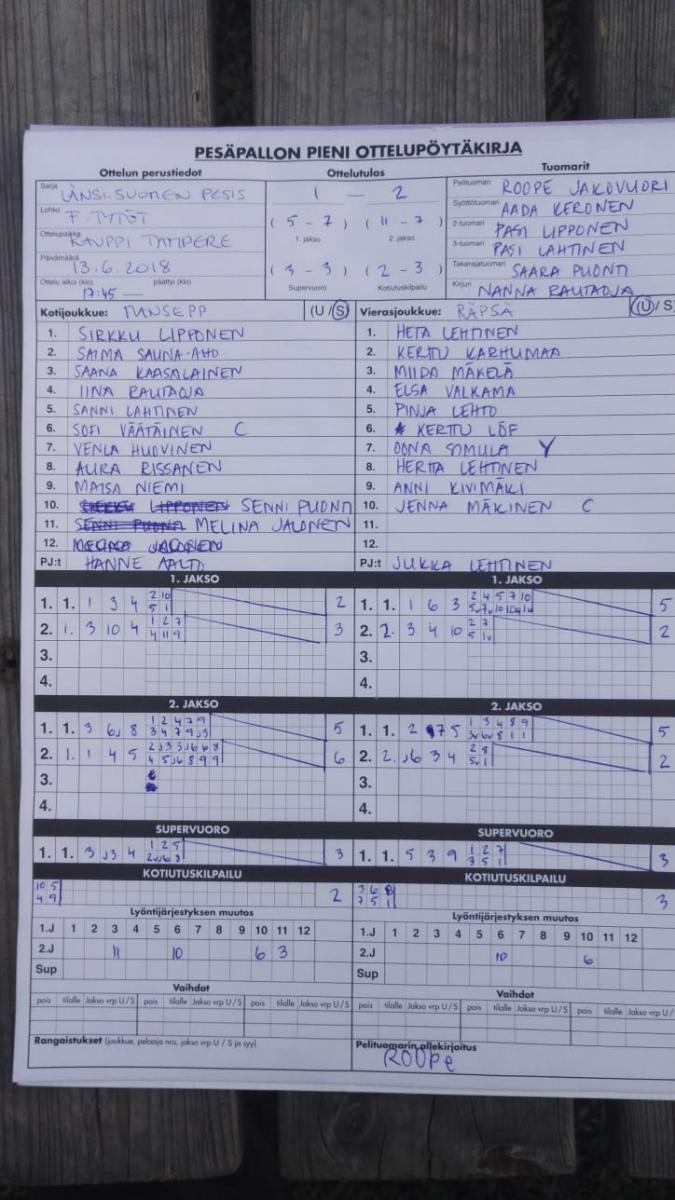 PESÄPALLON PIENI OTTELUPÖYTÄKIRJA
Ottelun perustiedot Ottelutulos Tuomarit
Sarja LÄNSI-SUOMEN PESIS 1 — 2 Pelituomari ROOPE JAKOVUORI
Lohko F-TYTÖT (5 - 7) (11 - 7) Syöttötuomari AADA KERONEN
1. jakso 2. jakso 2-tuomari PASI LIPPONEN
Ottelupaikka KAUPPI TAMPERE 3-tuomari PASI LAHTINEN
Päivämäärä 13.6.2018 (3 - 3) (2 - 3) Takarajatuomari SAARA PUONTI
Ottelu alkoi (klo) päättyi (klo) Supervuoro Kotiutuskilpailu Kirjuri NANNA RAUTAOJA
17:45 —
Kotijoukkue: MANSEPP (U/S) Vierasjoukkue: RÄPSÄ (U/S)
1. SIRKKU LIPPONEN 1. HETA LEHTINEN
2. SAIMA SAUNA-AHO 2. KERTTU KARHUMAA
3. SAANA KAASALAINEN 3. MIIDA MÄKELÄ
4. IINA RAUTAOJA 4. ELSA VALKAMA
5. SANNI LAHTINEN 5. PINJA LEHTO
6. SOFI VÄÄTÄINEN C 6. KERTTU LÖF
7. VENLA HUOVINEN 7. OONA SOMULA Y
8. AURA RISSANEN 8. HERTTA LEHTINEN
9. MAISA NIEMI 9. ANNI KIVIMÄKI
10. SIRKKU LIPPONEN SENNI PUONTI 10. JENNA MÄKINEN C
11. SENNI PUONTI MELINA JALONEN 11.
12. MELINA JALONEN 12.
PJ:t HANNE AALTO PJ:t JUKKA LEHTINEN
1. JAKSO 1. JAKSO
1. 1. 1 3 4 2 10 2 1. 1. 1 6 3 2 4 5 7 10 5
5 1
2. 1. 3 10 4 1 2 7 3 2. 2. 3 4 10 2 7 2
4 11 9
3. 3.
4. 4.
2. JAKSO 2. JAKSO
1. 1. 3 6J 8 1 2 4 7 9 5 1. 1. 2 7 5 1 3 4 8 9 5
2. 1. 1 4 5 6 2. 2. J6 3 4 2 8 2
3. 3.
4. 4.
SUPERVUORO SUPERVUORO
1. 1. 3 J3 4 1 2 5 3 1. 1. 5 3 9 1 2 7 3
3 5 1
KOTIUTUSKILPAILU KOTIUTUSKILPAILU
10 5 2 3 6 8 3
4 9 7 5 1
Lyöntijärjestyksen muutos Lyöntijärjestyksen muutos
1.J 1 2 3 4 5 6 7 8 9 10 11 12 1.J 1 2 3 4 5 6 7 8 9 10 11 12
2.J 11 10 6 3 2.J 10 6
Sup Sup
Vaihdot Vaihdot
pois tilalle Jakso vrp U/S pois tilalle Jakso vrp U/S pois tilalle Jakso vrp U/S pois tilalle Jakso vrp U/S pois tilalle Jakso vrp U/S pois tilalle Jakso vrp U/
Rangaistukset (joukkue, pelaaja nro, jakso vrp U / S ja syy) Pelituomarin allekirjoitus
ROOPE